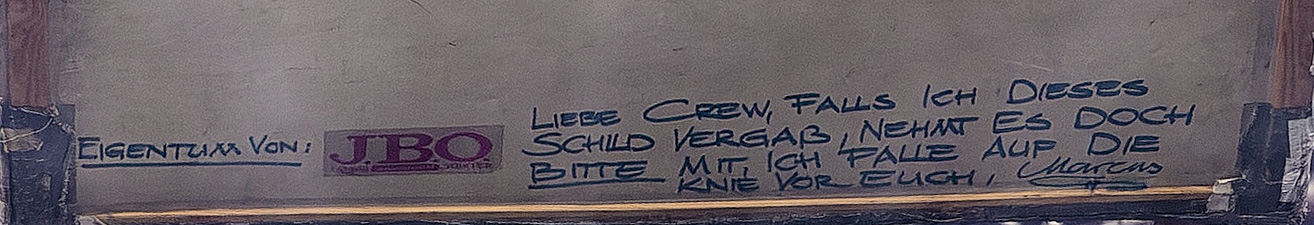 EIGENTUM VON:
J.B.O.
LIEBE CREW, FALLS ICH DIESES
SCHILD VERGAß, NEHMT ES DOCH
BITTE MIT, ICH FALLE AUF DIE
KNIE VOR EUCH, Marcus